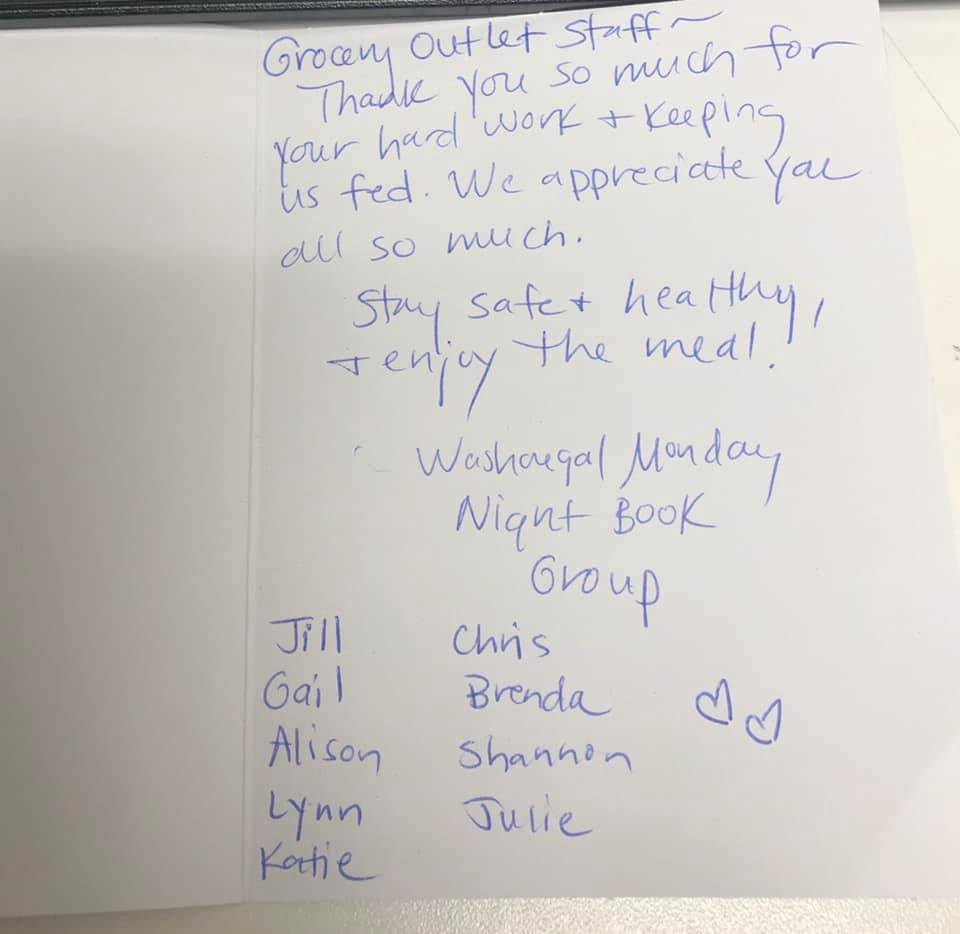 Grocery Outlet Staff~
Thank you so much for
your hard work + keeping
us fed. We appreciate you
all so much.
Stay safe + healthy,
+ enjoy the meal!
Washougal Monday
Night Book
Group
Jill Chris
Gail Brenda
Alison Shannon
Lynn Julie
Katie